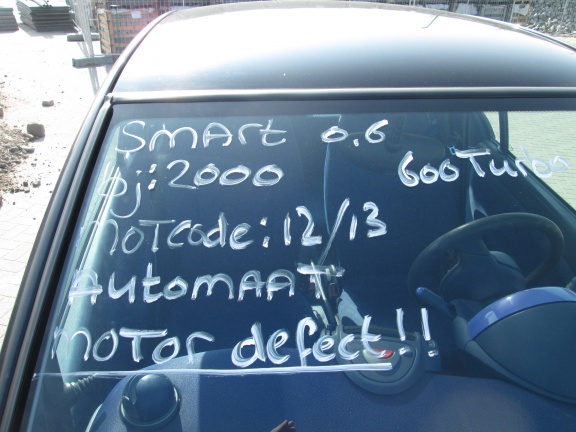 Smart 0.6
bj: 2000
600 Turbo
motcode: 12/13
AutomAAT
motor defect!!